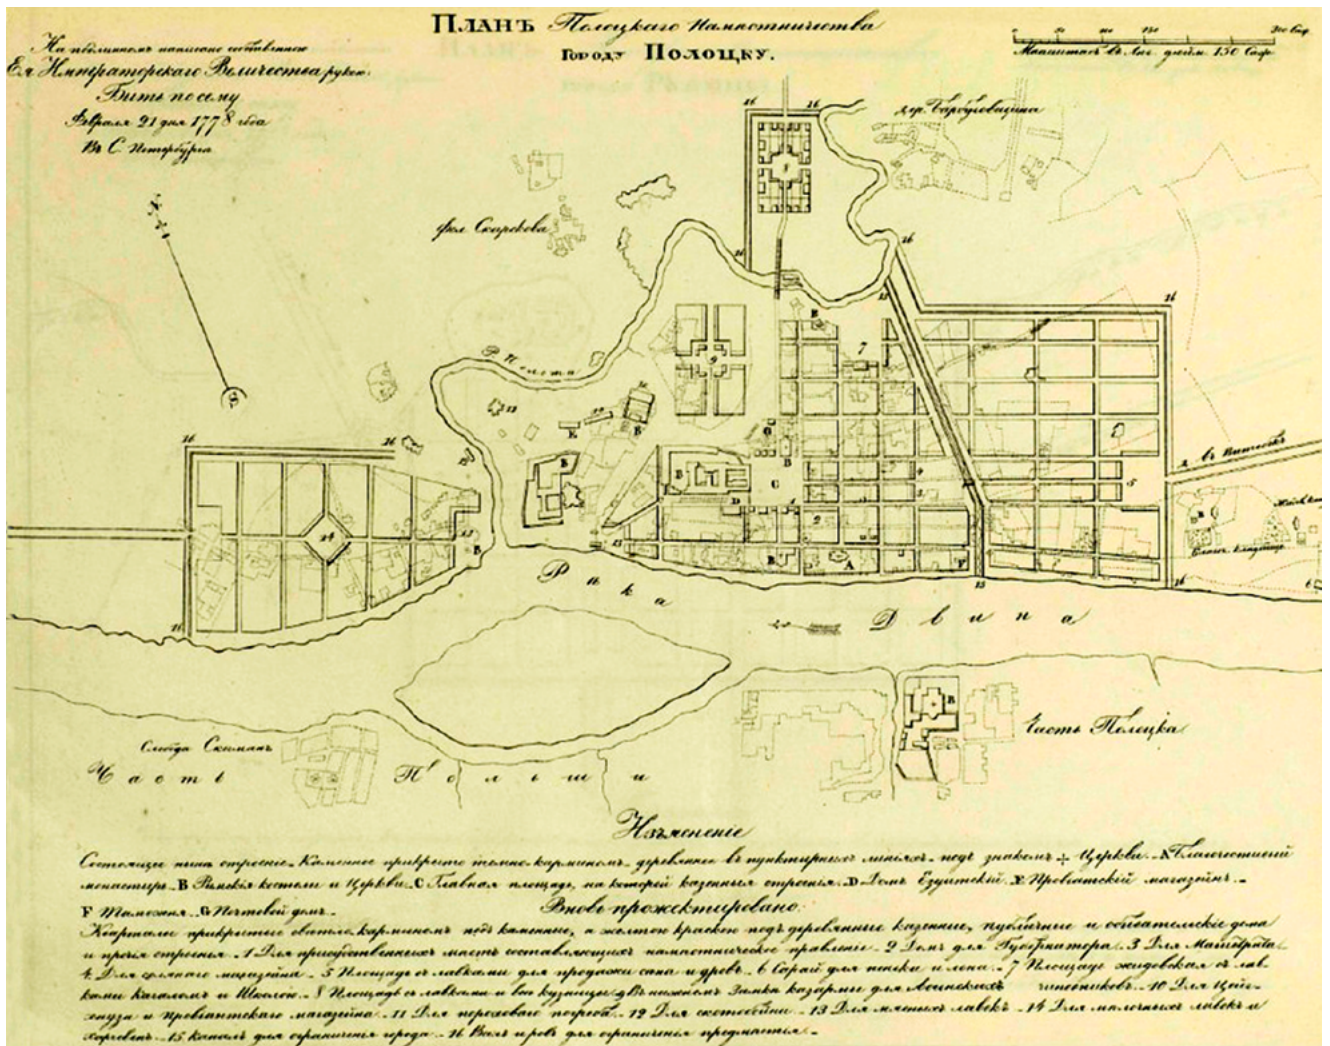 ПЛАНЪ Полоцкаго Намѣстничества
Городу Полоцку.
На подлинномъ написано собственною
Ея Императорскаго Величества рукою:
Быть по сему
Февраля 21 дня 1778 года
Въ С. Петербургѣ
0 50 100 150 300 Саж.
Масштабъ въ Анг. дюймѣ 150 Саж.
фол. Скаркова
Р. Полота
д. въ Витебскъ
Рѣка Двина
Слобода
Часть Польши
Часть Полоцка
Изъясненіе
Состоящее нынѣ строеніе. Каменное прикрыто темно карминомъ, деревянное въ пунктирныхъ линіяхъ. подъ знакомъ + Церкви. А Благочестивый
монастырь. В Римскія костелы и Церкви. С Главная площадь, на которой казенныя строенія. D Домъ Езуитскій. E Провіантскій магазейнъ.
F Таможня. G Почтовой домъ.
Вновь прожектировано:
Кварталы прикрытые свѣтло карминомъ подъ каменные, а желтою краскою подъ деревянные казенные, публичные и обывательскіе дома
и прочія строенія. 1 Для присудственныхъ мѣстъ составляющихъ намѣстническое правленіе. 2 Домъ для Губернатора. 3 Для Магистрата
4 Для солянаго магазейна. 5 Площадь съ лавками для продажи сена и дровъ. 6 Сарай для пеньки и лена. 7 Площадь жидовская съ лав-
ками Кагаломъ и Школою. 8 Площадь съ лавками и кузницы 9 Въ нижнемъ Замкѣ казармы для Воинскихъ чиновниковъ. 10 Для Цейх-
хауза и провіантскаго магазейна. 11 Для пороховаго погреба. 12 Для скотобойни. 13 Для мясныхъ лавокъ. 14 Для мелочныхъ лавокъ и
харчевенъ. 15 Каналъ для ограниченія города. 16 Валъ и ровъ для ограниченія предмѣстья.